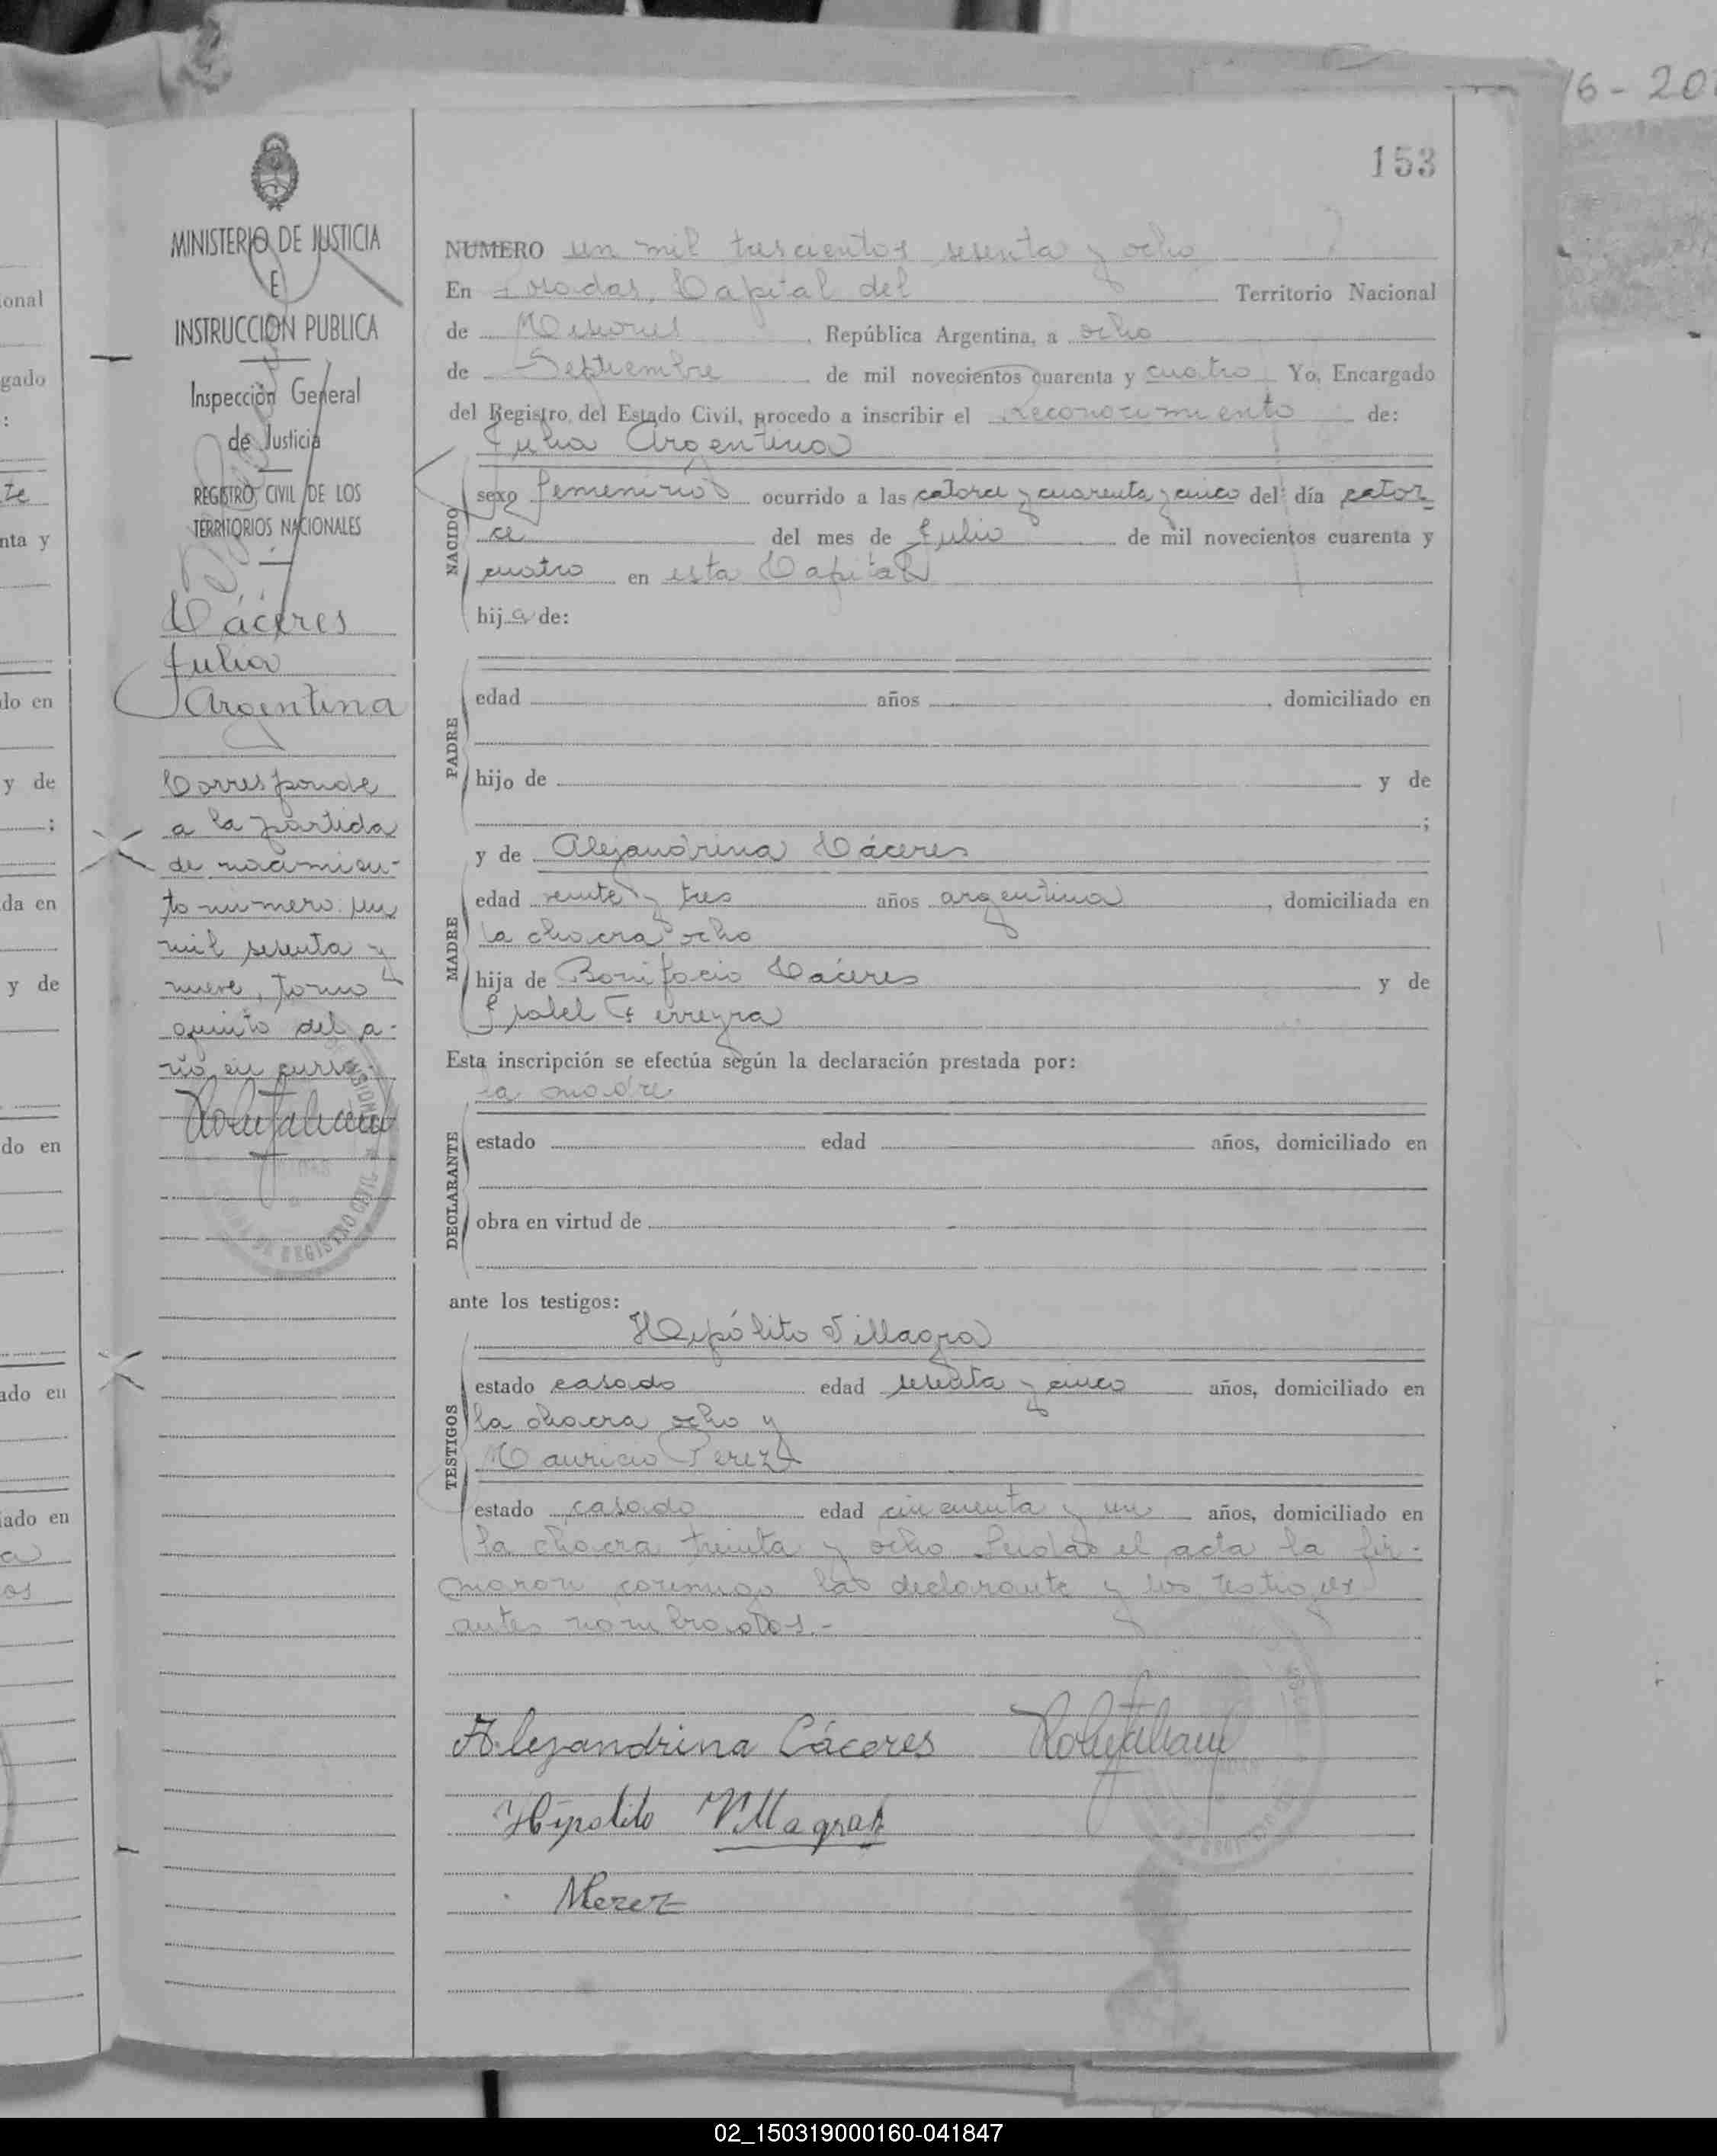 6-20
153
MINISTERIO DE JUSTICIA
E
INSTRUCCION PUBLICA
Inspección General
de Justicia
REGISTRO CIVIL DE LOS
TERRITORIOS NACIONALES
Cáceres
Julia
Argentina
Corresponde
a la partida
de nacimien-
to número un
mil sesenta y
nueve, tomo
quinto del a-
ño en curso.
NUMERO un mil trescientos sesenta y ocho
En Posadas, Capital del Territorio Nacional
de Misiones, República Argentina, a ocho
de Septiembre de mil novecientos cuarenta y cuatro Yo, Encargado
del Registro del Estado Civil, procedo a inscribir el reconocimiento de:
Julia Argentina
NACIDO
sexo femenino ocurrido a las catorce y cuarenta y cinco del día cator-
ce del mes de Julio de mil novecientos cuarenta y
cuatro en esta Capital
hija de:
PADRE
edad años , domiciliado en
hijo de y de
;
y de Alejandrina Cáceres
MADRE
edad veinte y tres años argentina, domiciliada en
la chacra ocho
hija de Bonifacio Cáceres y de
Isabel Ferreyra
Esta inscripción se efectúa según la declaración prestada por:
la madre
DECLARANTE
estado edad años, domiciliado en
obra en virtud de
ante los testigos:
Hipólito Villagra
TESTIGOS
estado casado edad sesenta y cinco años, domiciliado en
la chacra ocho y
Mauricio Perez
estado casado edad cincuenta y un años, domiciliado en
la chacra treinta y ocho Leida el acta la fir-
maron conmigo la declarante y los testigos
antes nombrados.-
Alejandrina Cáceres
Hipolito Villagra
MPerez
onal
gado
:
te
nta y
do en
y de
;
da en
y de
do en
ado en
iado en
a
os
02_150319000160-041847